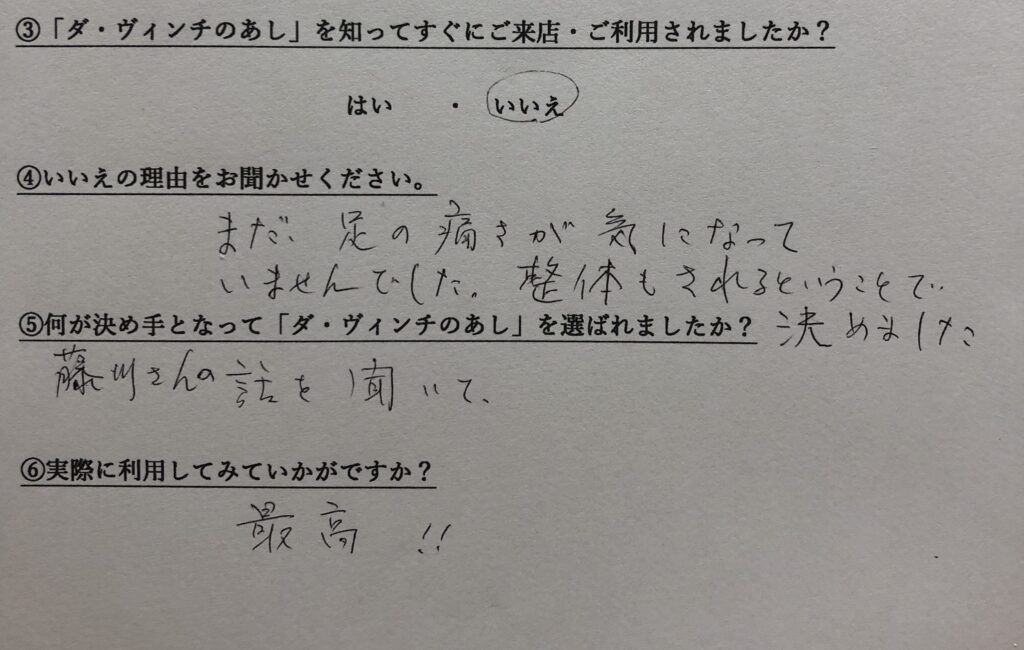 ③「ダ・ヴィンチのあし」を知ってすぐにご来店・ご利用されましたか？
はい ・ いいえ
④いいえの理由をお聞かせください。
まだ、足の痛さが気になって
いませんでした。整体もされるということで
⑤何が決め手となって「ダ・ヴィンチのあし」を選ばれましたか？ 決めました
藤川さんの話を聞いて、
⑥実際に利用してみていかがですか？
最高 !!